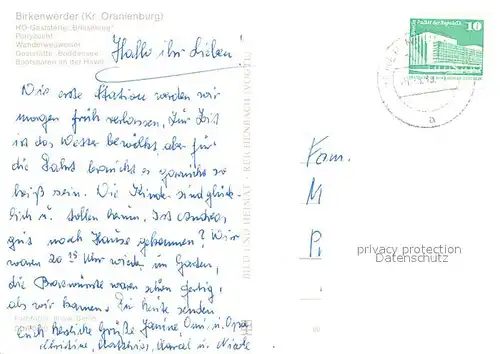 Birkenwerder (Kr. Oranienburg)
HO-Gaststätte „Briesekrug"
Ponyjagd
Wanderwegweiser
Gaststätte „Boddensee"
Bootsstation an der Havel
Hallo ihr Lieben!
Die erste Station werden wir
morgen früh verlassen. Zur Zeit
ist das Wetter bewölkt, aber für
die Fahrt braucht es garnicht so
heiß sein. Die Kinder sind glück-
lich u. tollen herum. Ist Andreas
gut nach Hause gekommen? Wir
waren 20 15 Uhr wieder im Garten,
die Bratwürste waren schon fertig,
als wir kamen. Für heute senden
Euch herzliche Grüße Janine, Omi u. Opa
Christine, Matthias, Marcel u. Nicole
BILD UND HEIMAT REICHENBACH (VOGTL)
Palast der Republik
10
DDR
a
Fam.
M
P
privacy protection
Datenschutz